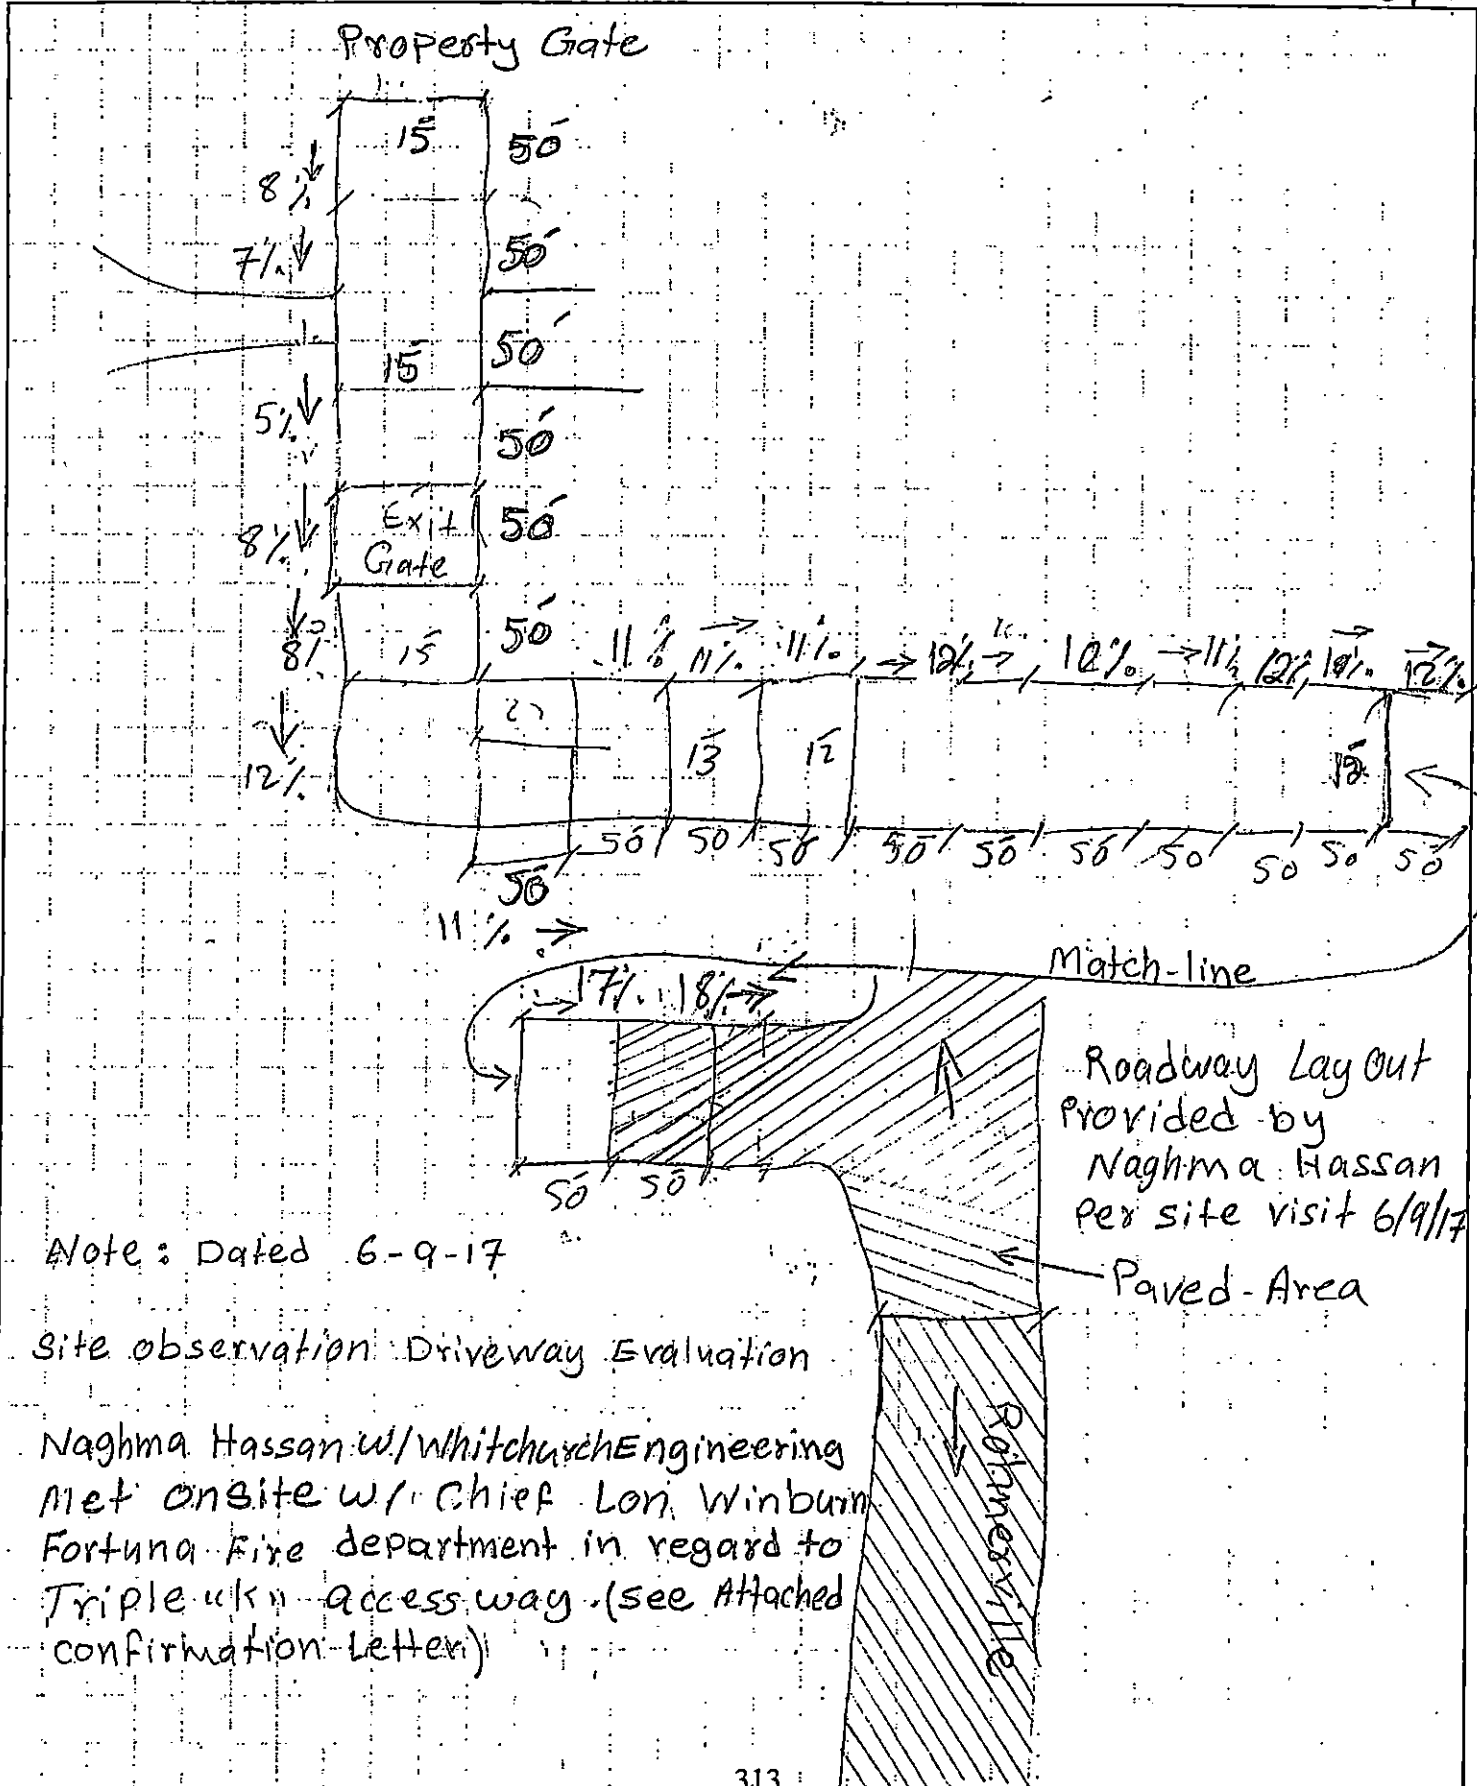 Property Gate
15' 50'
8%
7% 50'
15' 50'
5% 50'
8% Exit Gate 50'
8% 15' 50' 11% 11% 11% 12% 12% 11% 12% 12% 12%
12% 13' 12' 12'
50' 50 50' 50' 50' 50' 50 50 50 50'
50'
11%
Match-line
17% 18%
50' 50'
Roadway Lay Out
Provided by
Naghma Hassan
Per site visit 6/9/17
Paved-Area
Note: Dated 6-9-17
Site observation Driveway Evaluation
Naghma Hassan w/Whitchurch Engineering
Met onsite w/ Chief Lon Winburn
Fortuna Fire department in regard to
Triple "k" access way. (see Attached
confirmation Letter)
Rohnerville
313